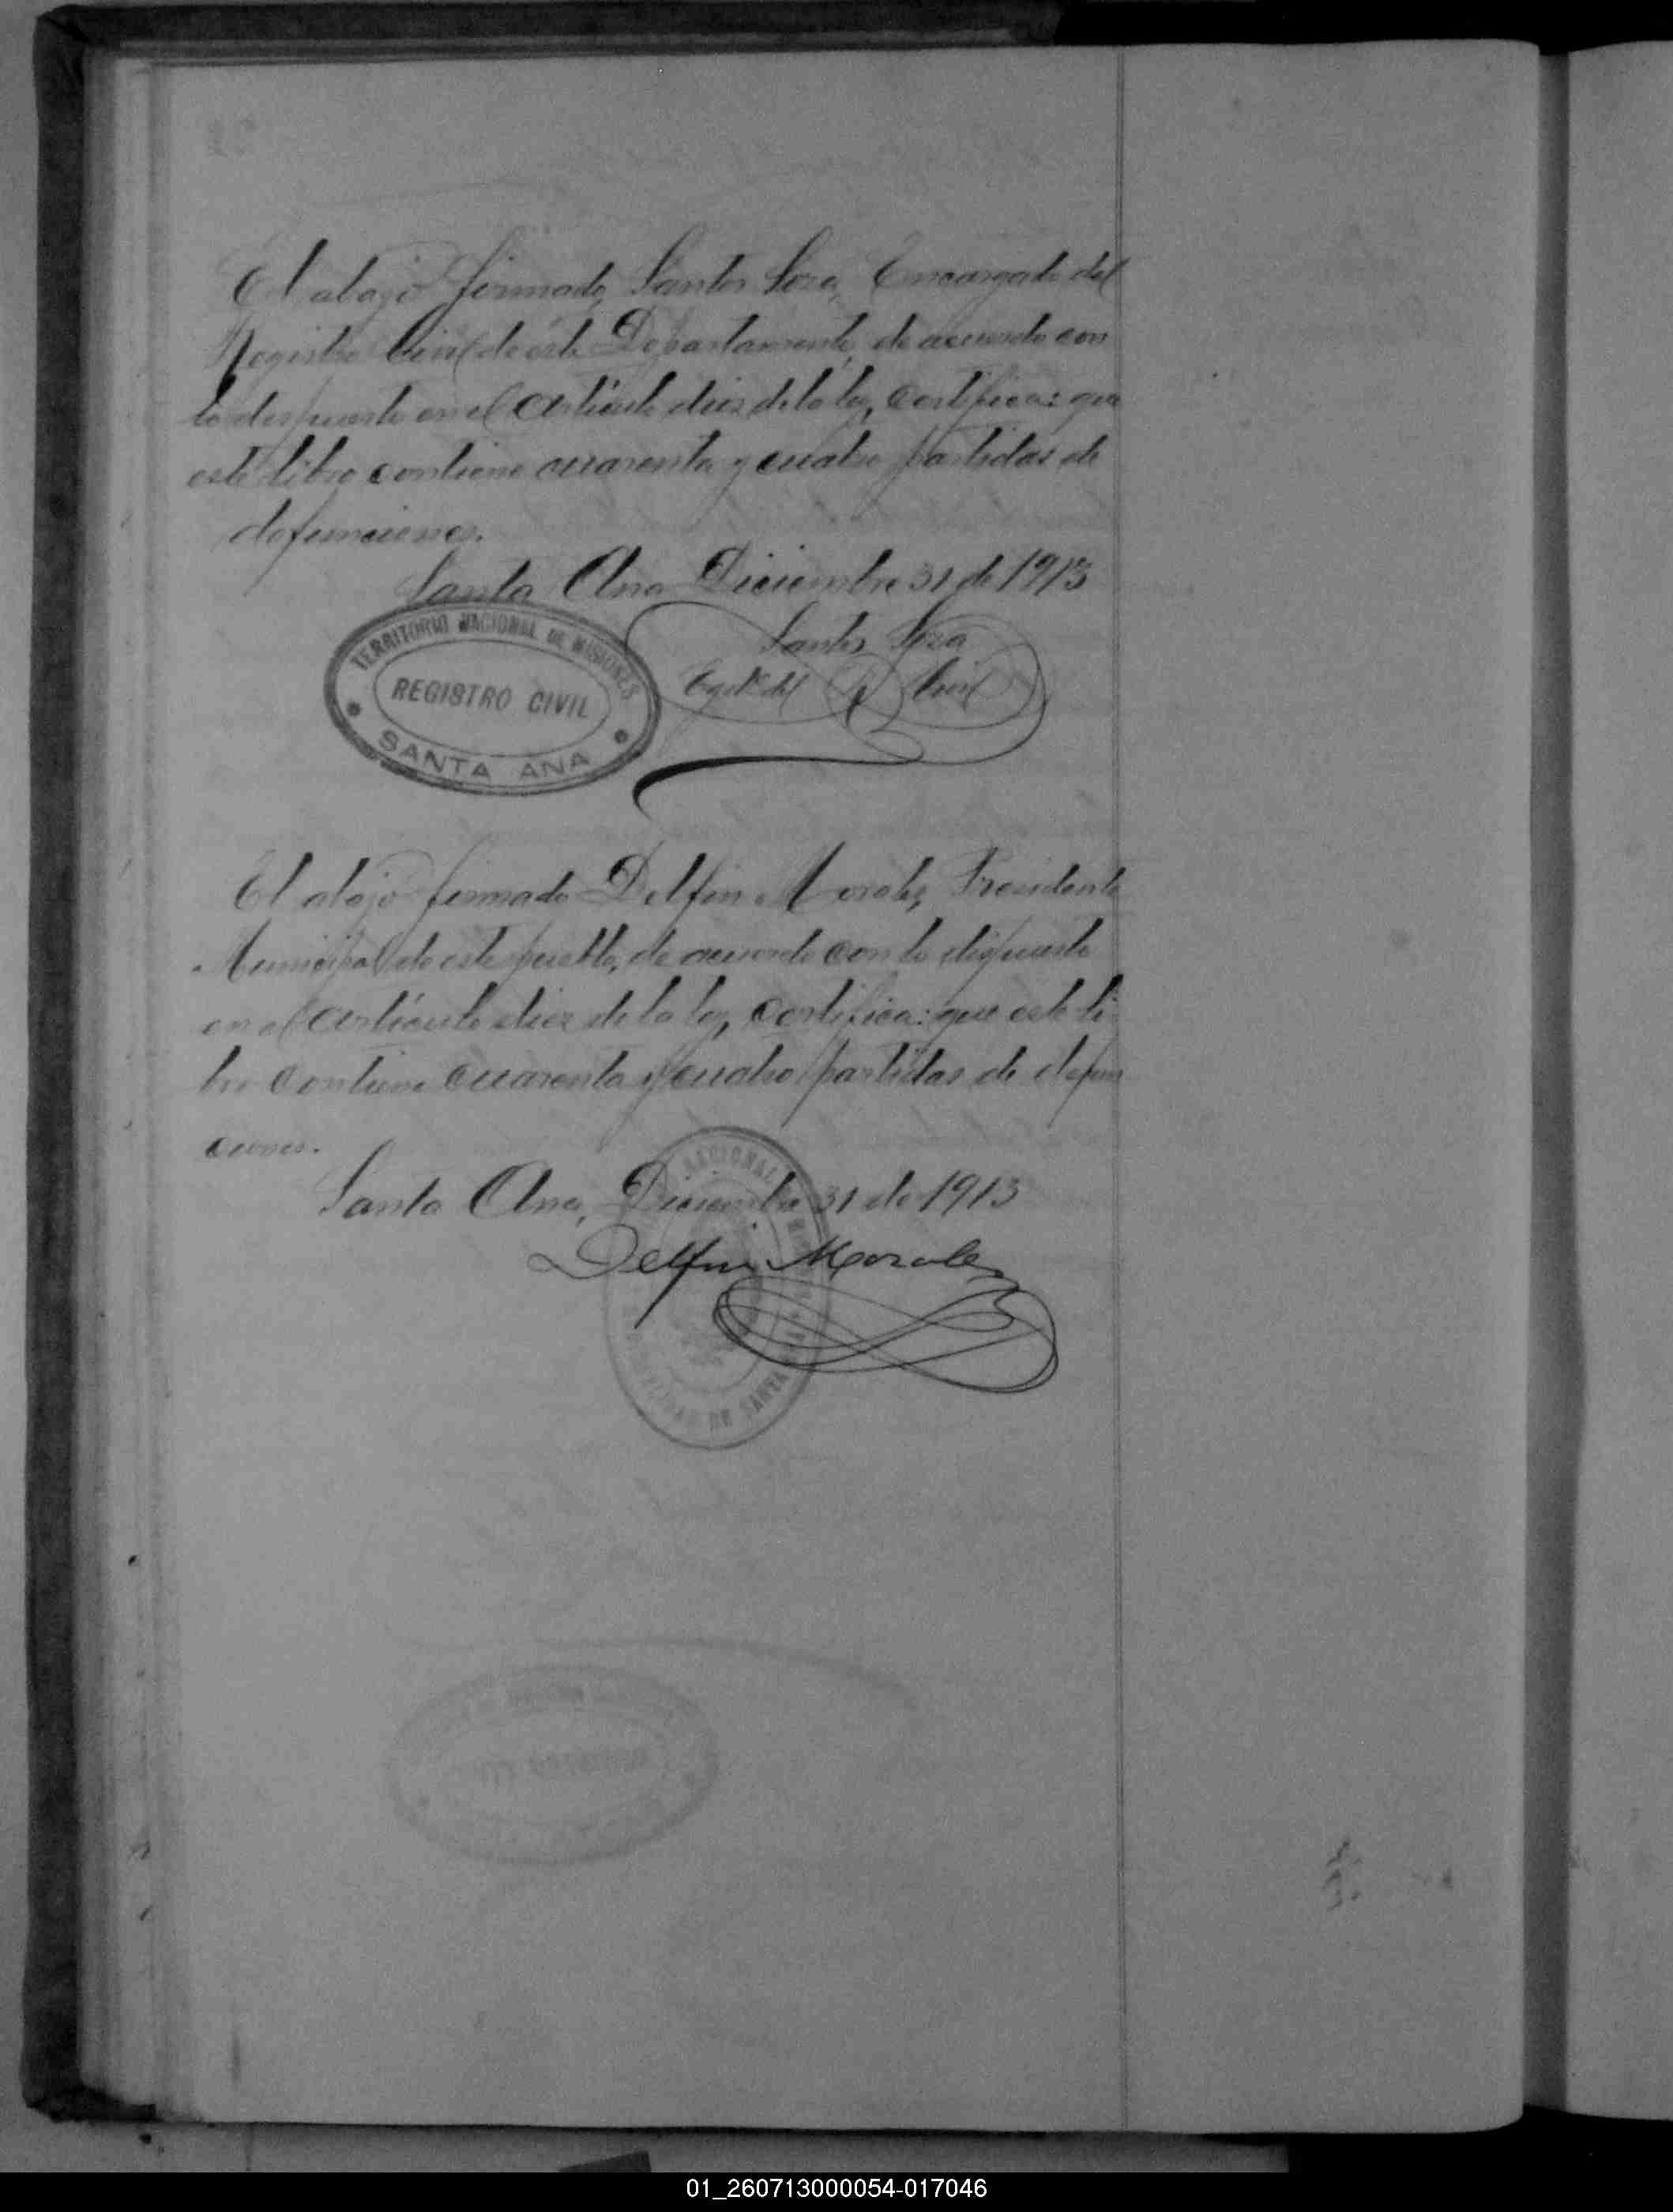 El abajo firmado, Santos Soza, Encargado del
Registro Civil de éste Departamento, de acuerdo con
lo dispuesto en el Artículo diez de la ley, certifica: que
este libro contiene cuarenta y cuatro partidas de
defunciones.
Santa Ana Diciembre 31 de 1913
Santos Soza
del R Civil
TERRITORIO NACIONAL DE MISIONES
REGISTRO CIVIL
SANTA ANA
El abajo firmado Delfin Morales, Presidente
Municipal de este pueblo, de acuerdo con lo dispuesto
en el Artículo diez de la ley, certifica: que este li-
bro contiene cuarenta y cuatro partidas de defun
ciones.
Santa Ana, Diciembre 31 de 1913
Delfin Morales
NACIONAL
DE SANTA
01_260713000054-017046